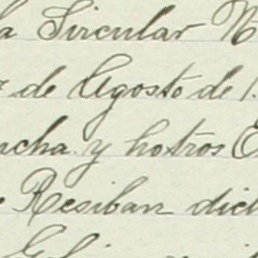 a Sircular N
de Agosto de 1
cha y hotros E
Resiban dic